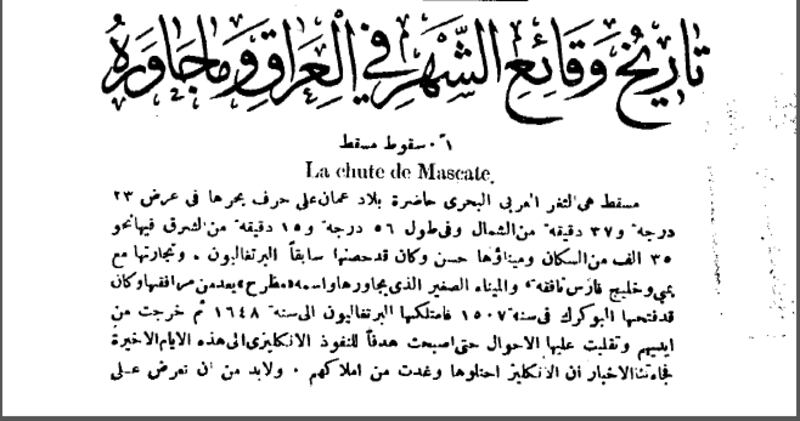 تاريخ وقائع الشهر في العراق وما جاوره
١ً. سقوط مسقط
La chute de Mascate.
مسقط هي الثغر العربي البحري حاضرة بلاد عمان على حرف بحرها في عرض ٢٣
درجة و٣٧ دقيقة من الشمال وفي طول ٥٦ درجة و١٥ دقيقة من الشرق فيها نحو
٣٥ الف من السكان وميناؤها حسن وكان قد حصنها سابقاً البرتغاليون . وتجارتها مع
بمي وخليج فارس نافقة والميناء الصغير الذي يجاورها واسمه «مطرح» يعد من مرافقها وكان
قد فتحها البوكرك في سنة ١٥٠٧ فامتلكها البرتغاليون الى سنة ١٦٤٨ ثم خرجت من
ايديهم وتقلبت عليها الاحوال حتى اصبحت هدفاً للنفوذ الانكليزي الى هذه الايام الاخيرة
فجاءتنا الاخبار ان الانكليز احتلوها وغدت من املاكهم . ولابد من ان نعرض على